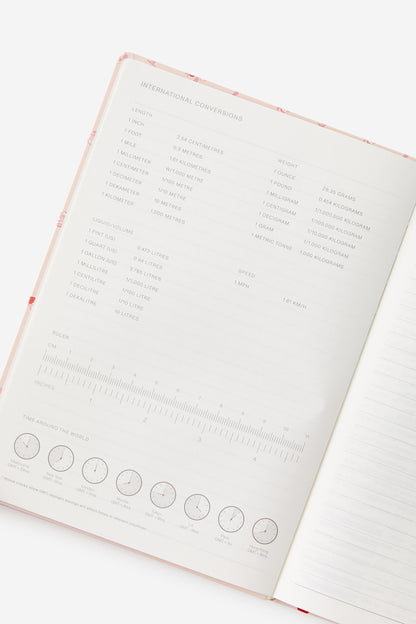 INTERNATIONAL CONVERSIONS
LENGTH
1 INCH 2.54 CENTIMETRES
1 FOOT 0.3 METRES
1 MILE 1.61 KILOMETRES
1 MILLIMETER
1 CENTIMETER 1/100 METRE
1 DECIMETER 1/10 METRE
1 DEKAMETER 10 METRES
1 KILOMETER 1,000 METRES
WEIGHT
1 OUNCE 28.35 GRAMS
1 POUND 0.454 KILOGRAMS
1 MILLIGRAM 1/1,000,000 KILOGRAM
1 CENTIGRAM 1/100,000 KILOGRAM
1 DECIGRAM 1/10,000 KILOGRAM
1 GRAM 1/1,000 KILOGRAM
1 METRIC TONNE 1,000 KILOGRAMS
LIQUID/VOLUME
1 PINT (US) 0.473 LITRES
1 QUART (US) 0.94 LITRES
1 GALLON (US) 3.785 LITRES
1 MILLILITRE 1/1,000 LITRE
1 CENTILITRE 1/100 LITRE
1 DECILITRE 1/10 LITRE
1 DEKALITRE 10 LITRES
SPEED
1 MPH 1.61 KM/H
RULER
CM 1 2 3 4 5 6 7 8 9 10 11
INCHES 1 2 3 4
TIME AROUND THE WORLD